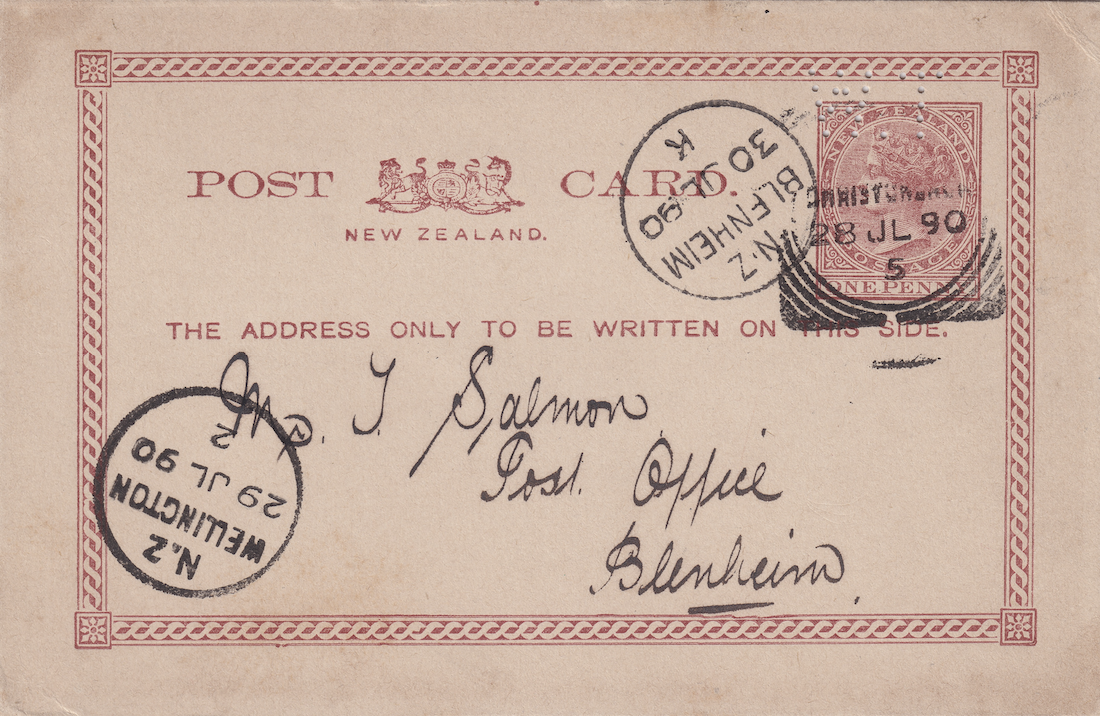 POST CARD.
NEW ZEALAND.
THE ADDRESS ONLY TO BE WRITTEN ON THIS SIDE.
NEW ZEALAND
POSTAGE
ONE PENNY
CHRISTCHURCH
28 JL 90
5
N.Z
BLENHEIM
30 JL 90
K
N.Z
WELLINGTON
29 JL 90
2
Mr. J. Salmon
Post Office
Blenheim